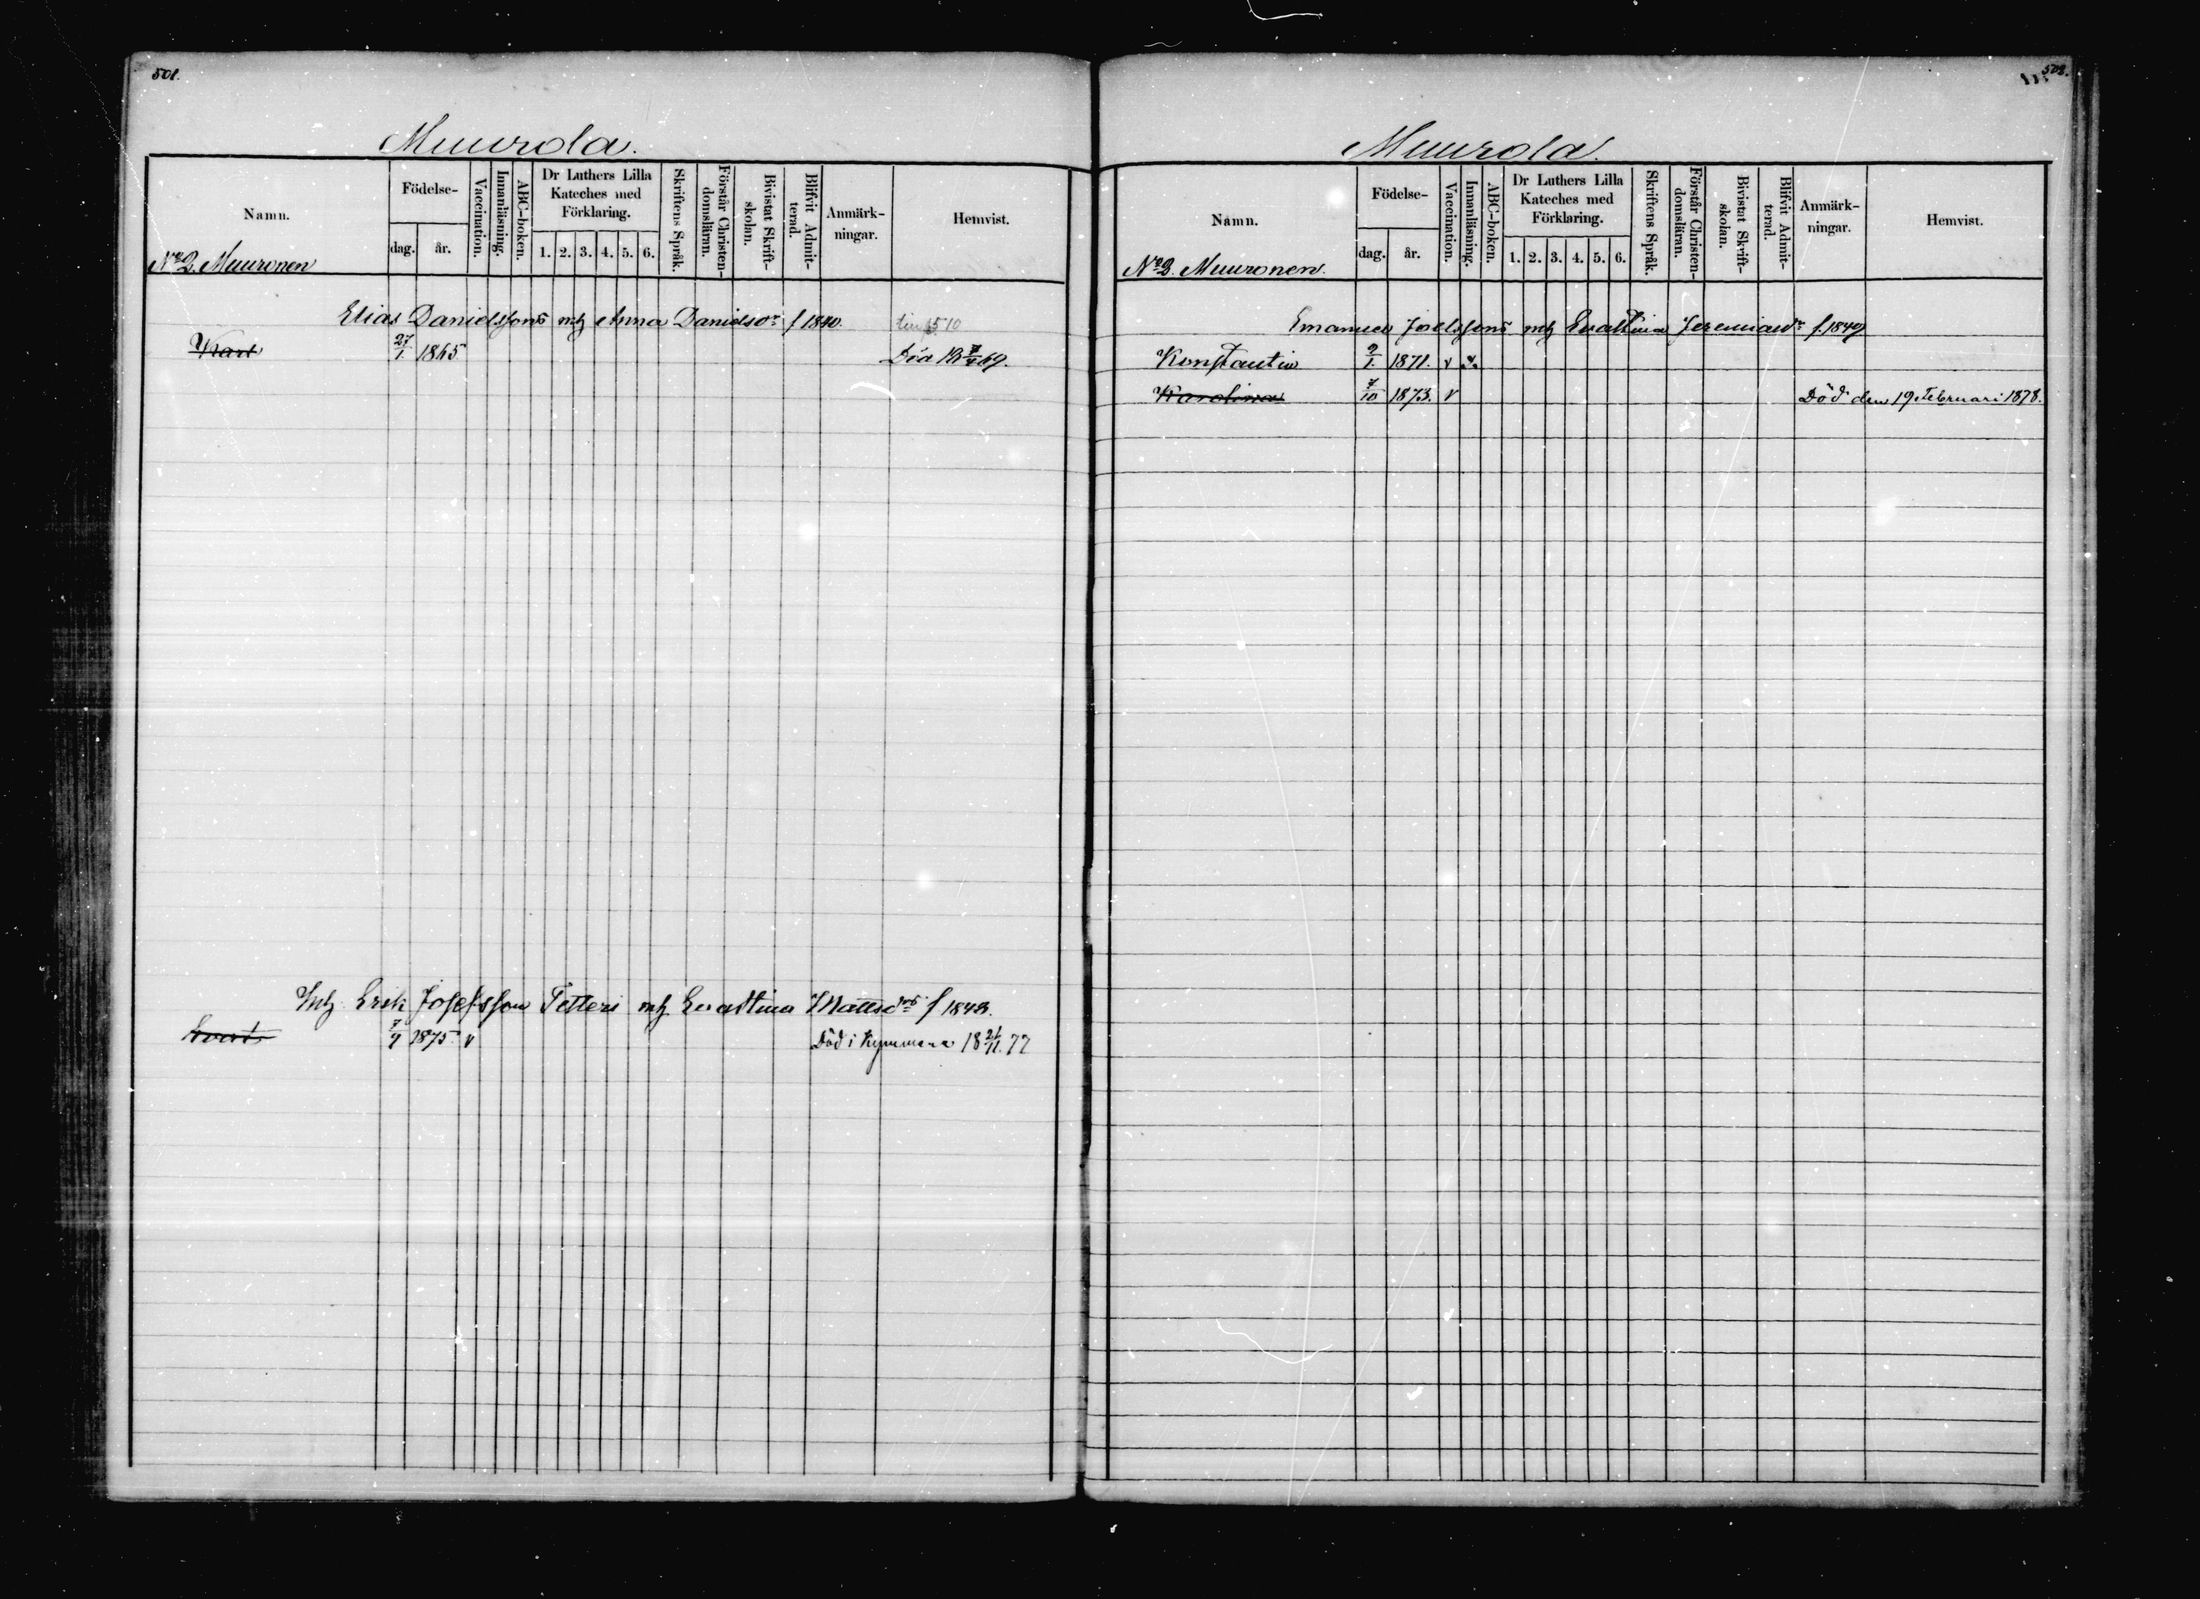 501.
Muurola.
Namn.
Födelse-
dag.
år.
Vaccination.
Innanläsning.
ABC-boken.
Dr Luthers Lilla
Kateches med
Förklaring.
1. 2. 3. 4. 5. 6.
Skriftens Språk.
Förstår Christen-
domsläran.
Bivistat Skrift-
skolan.
Blifvit Admit-
terad.
Anmärk-
ningar.
Hemvist.
No 2. Muuronen
Elias Danielssons mh Anna Danielsdr f 1840.
Karl 27/1 1865 Död
Inh Erik Josefsson Tetteri mh Evastina Mattsdr f 1843.
7/7 1875 v Död i Kymmene 18 21/11 77
Muurola.
Namn.
Födelse-
dag.
år.
Vaccination.
Innanläsning.
ABC-boken.
Dr Luthers Lilla
Kateches med
Förklaring.
1. 2. 3. 4. 5. 6.
Skriftens Språk.
Förstår Christen-
domsläran.
Bivistat Skrift-
skolan.
Blifvit Admit-
terad.
Anmärk-
ningar.
Hemvist.
Muuronen.
Emanuel Joelssons mh Evastina Jeremiaedr f. 1849
Konstantin 2/1 1871. v
Karolina 7/10 1873. v Död den 19 Februari 1878.